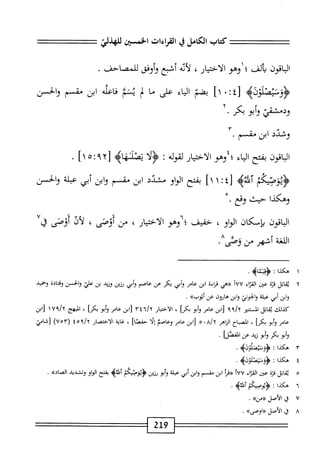 كتاب الكامل في القراءات الخمسين للهذليّ
الباقون بألف ؛ ١وهو الاختيار ، لأنّه أشبع وأوفق للمصاحف .
﴿وَسَيَصْلَوْنَ﴾ [١٠:٤] بضمّ الياء على ما لم يُسَمَّ فاعلُه ابن مقسم والحسن
ودمشقيّ وأبو بكر . ٢
وشدّد ابن مقسم . ٣
الباقون بفتح الياء ؛ ٤وهو الاختيار لقوله : ﴿لَا يَصْلَىٰهَا﴾ [١٥:٩٢] .
﴿يُوَصِّيكُمُ ٱللَّهُ﴾ [١١:٤] بفتح الواو مشدّد ابن مقسم وابن أبي عبلة والحسن
وهكذا حيث وقع . ٥
الباقون بإسكان الواو ، خفيف ؛ ٦وهو الاختيار ، من أَوْصَى ، لأنّ أَوْصَى في ٧
اللغة أشهر من وَصَّى ٨.
١ هكذا : ﴿قِيَٰمًا﴾ .
٢ يُقابَل قرّة عين القرّاء ٧٧أ «هي قراءة ابن عامر وأبي بكر عن عاصم وأبي رزين وزيد بن عليّ والحسن وقتادة وحميد
وابن أبي عبلة والجونيّ وابن هارون عن أيّوب» .
كذلك يُقابَل المستنير ٩٩/٢ [ابن عامر وأبو بكر] ، الاختيار ٣٤٦/٢ [ابن عامر وأبو بكر] ، المبهج ١٧٩/٢ [ابن
عامر وأبو بكر] ، المصباح الزاهر ٥٠٨/٢ [ابن عامر وعاصم إلّا حفصًا] ، غاية الاختصار ٤٥٩/٢ (٧٥٣) [شاميّ
وأبو بكر وأبو زيد عن المفضّل] .
٣ هكذا : ﴿وَسَيُصَلَّوْنَ﴾ .
٤ هكذا : ﴿وَسَيَصْلَوْنَ﴾ .
٥ يُقابَل قرّة عين القرّاء ٧٧أ «قرأ ابن مقسم وابن أبي عبلة وأبو رزين ﴿يُوَصِّيكُمُ ٱللَّهُ﴾ بفتح الواو وتشديد الصاد» .
٦ هكذا : ﴿يُوصِيكُمُ ٱللَّهُ﴾ .
٧ في الأصل «من» .
٨ في الأصل «اوصى» .
219